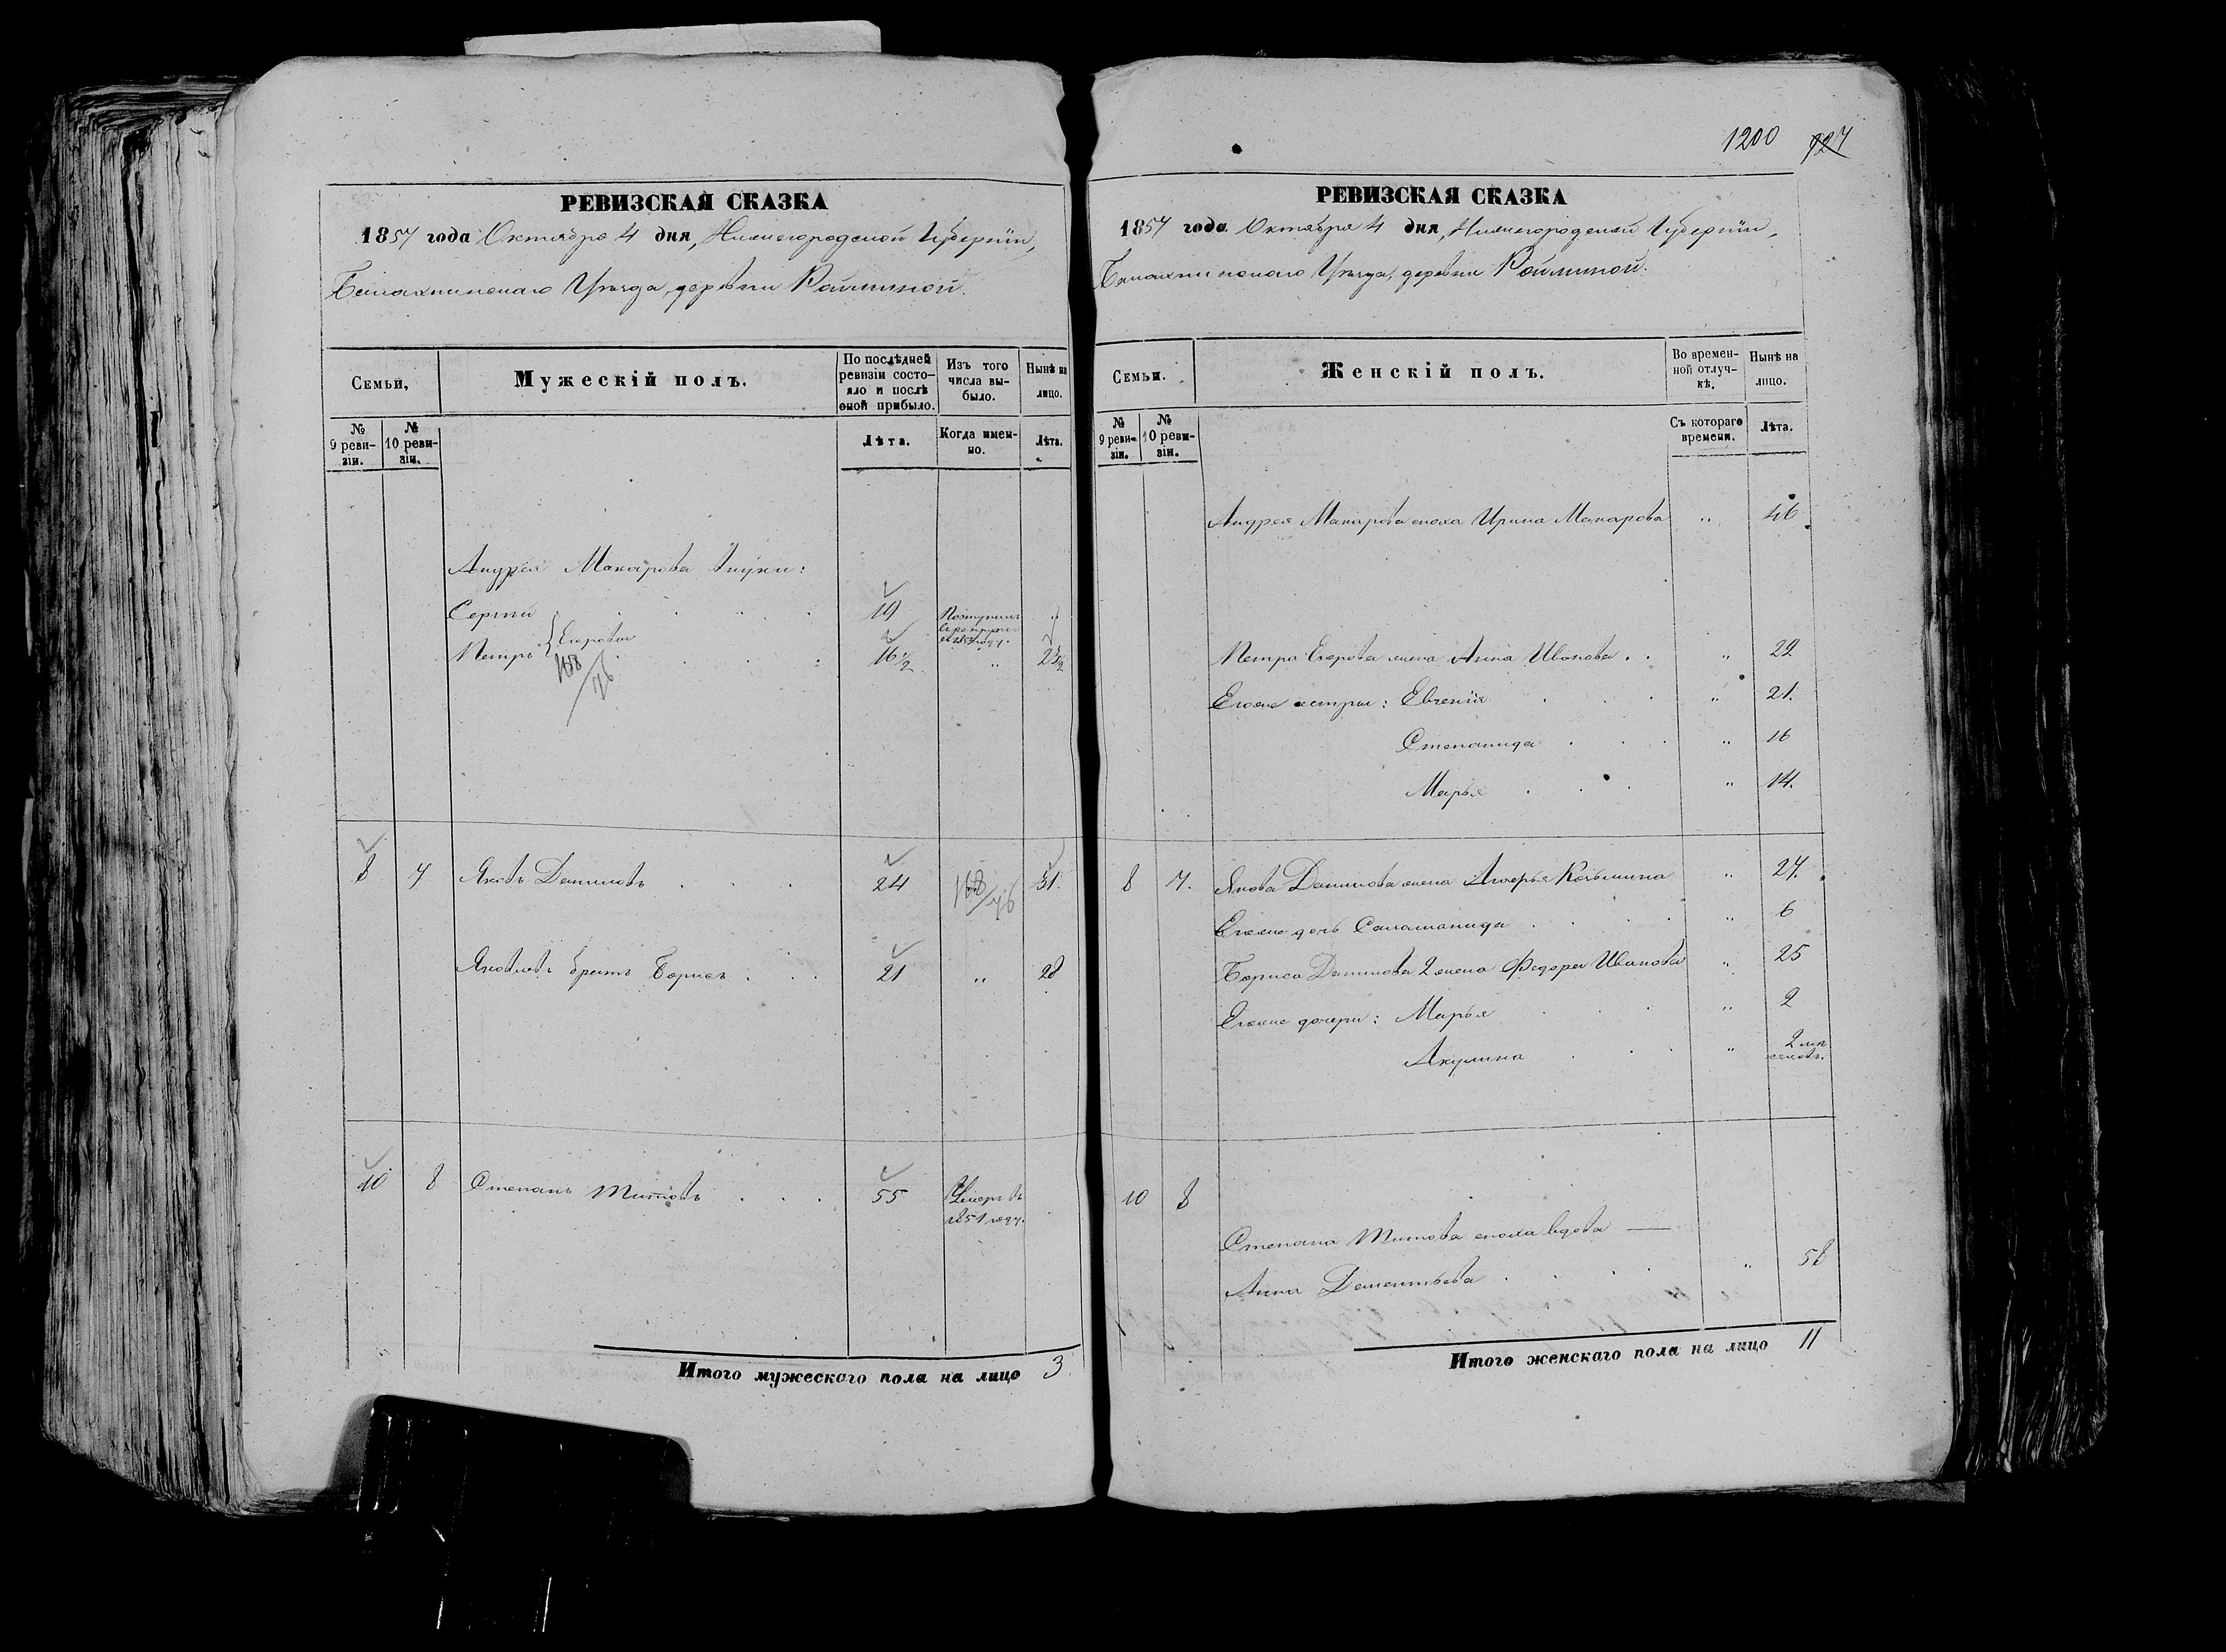 1200 727
РЕВИЗСКАЯ СКАЗКА
1857 года Октября 4 дня, Нижегородской Губернiи,
Балахнинскаго Уѣзда, деревни
Семьи,
Мужескiй полъ.
По послѣдней ревизiи состояло и послѣ оной прибыло.
Изъ того числа выбыло.
Нынѣ на лицо.
№ 9 ревизiи.
№ 10 ревизiи.
Лѣта.
Когда именно.
Лѣта.
Андрея Макарова внуки:
Сергѣй 19 Поступилъ въ рекруты
Петръ } Егоровы 16 1/2 „ 23 1/2
168/76
8 7 Яковъ Даниловъ 24 168/76 31.
Яковлевъ братъ Борисъ 21 „ 28
10 8 Степанъ Титовъ 55 Умеръ въ
1851 году.
Итого мужескаго пола на лицо 3
РЕВИЗСКАЯ СКАЗКА
1857 года Октября 4 дня, Нижегородской Губернiи,
Балахнинскаго Уѣзда, деревни
Семьи.
Женскiй полъ.
Во временной отлучкѣ,
Нынѣ на лицо.
№ 9 ревизiи.
№ 10 ревизiи.
Съ котораго времени.
Лѣта.
Андрея Макарова сноха Ирина Макарова „ 46
Петра Егорова жена Анна Иванова „ 22
Егоже сестры: Евгенiя „ 21.
Степанида „ 16
Марья „ 14.
8 7. Якова Данилова жена Козьмина „ 27.
Егоже дочь Саломанида „ 6
Бориса Данилова 2 жена Федора Иванова „ 25
Егоже дочери: Марья „ 2
Акулина „ 2 мѣсяцовъ.
10 8
Степана Титова сноха вдова —
Анна Дементьева „ 58
Итого женскаго пола на лицо 11